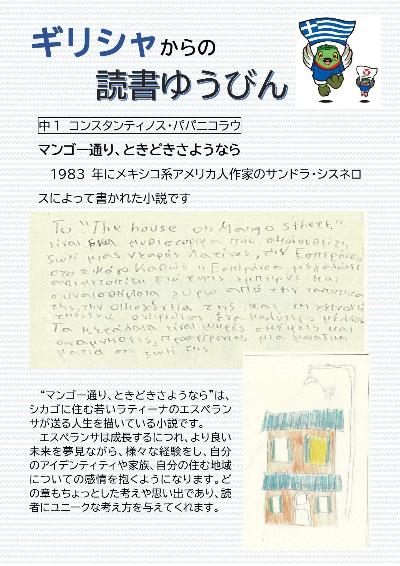 ギリシャからの
読書ゆうびん
中1 コンスタンティノス・パパニコラウ
マンゴー通り、ときどきさようなら
1983 年にメキシコ系アメリカ人作家のサンドラ・シスネロ
スによって書かれた小説です
Το "The house on Mango street"
είναι ένα μυθιστόρημα που ακολουθεί τη
ζωή μιας νεαρής Λατίνας, την Εσπεράνσα
στο Σικάγο. Καθώς η Εσπεράνσα μεγαλώνει
αντιμετωπίζει διάφορες εμπειρίες και
συναισθήματα γύρω από την ταυτότητα
της, την οικογένειά της και τη γειτονιά
της, ενώ ονειρεύεται ένα καλύτερο μέλλον.
Τα κεφάλαια είναι μικρές σκέψεις και
αναμνήσεις, προσφέροντας μια μοναδική
ματιά στη ζωή της.
“マンゴー通り、ときどきさようなら”は、
シカゴに住む若いラティーナのエスペラン
サが送る人生を描いている小説です。
エスペランサは成長するにつれ、より良い
未来を夢見ながら、様々な経験をし、自分
のアイデンティティや家族、自分の住む地域
についての感情を抱くようになります。ど
の章もちょっとした考えや思い出であり、読
者にユニークな考え方を与えてくれます。